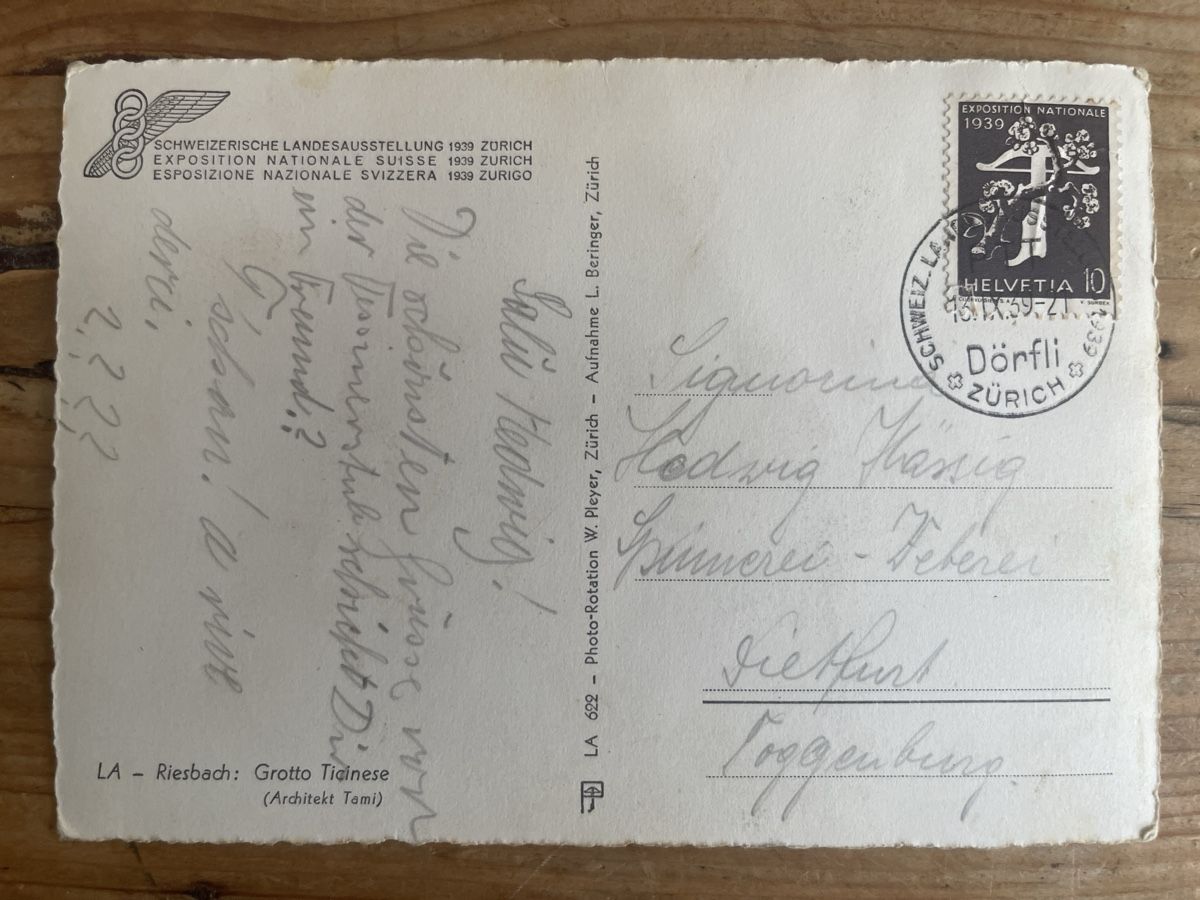 SCHWEIZERISCHE LANDESAUSSTELLUNG 1939 ZÜRICH
EXPOSITION NATIONALE SUISSE 1939 ZÜRICH
ESPOSIZIONE NAZIONALE SVIZZERA 1939 ZURIGO
Salü Hedwig!
Die schönsten Grüsse von
der schickt Dir
ein Freund?
G'schau! a rive
derci,
? ? ? ?
LA – Riesbach: Grotto Ticinese
(Architekt Tami)
LA 622 – Photo-Rotation W. Pleyer, Zürich – Aufnahme L. Beringer, Zürich
EXPOSITION NATIONALE
1939
HELVETIA 10
SCHWEIZ. LA 1939
13.IX.39-21
Dörfli
ZÜRICH
Signorina
Hedwig Hässig
Spinnerei - Weberei
Dietfurt
Toggenburg.